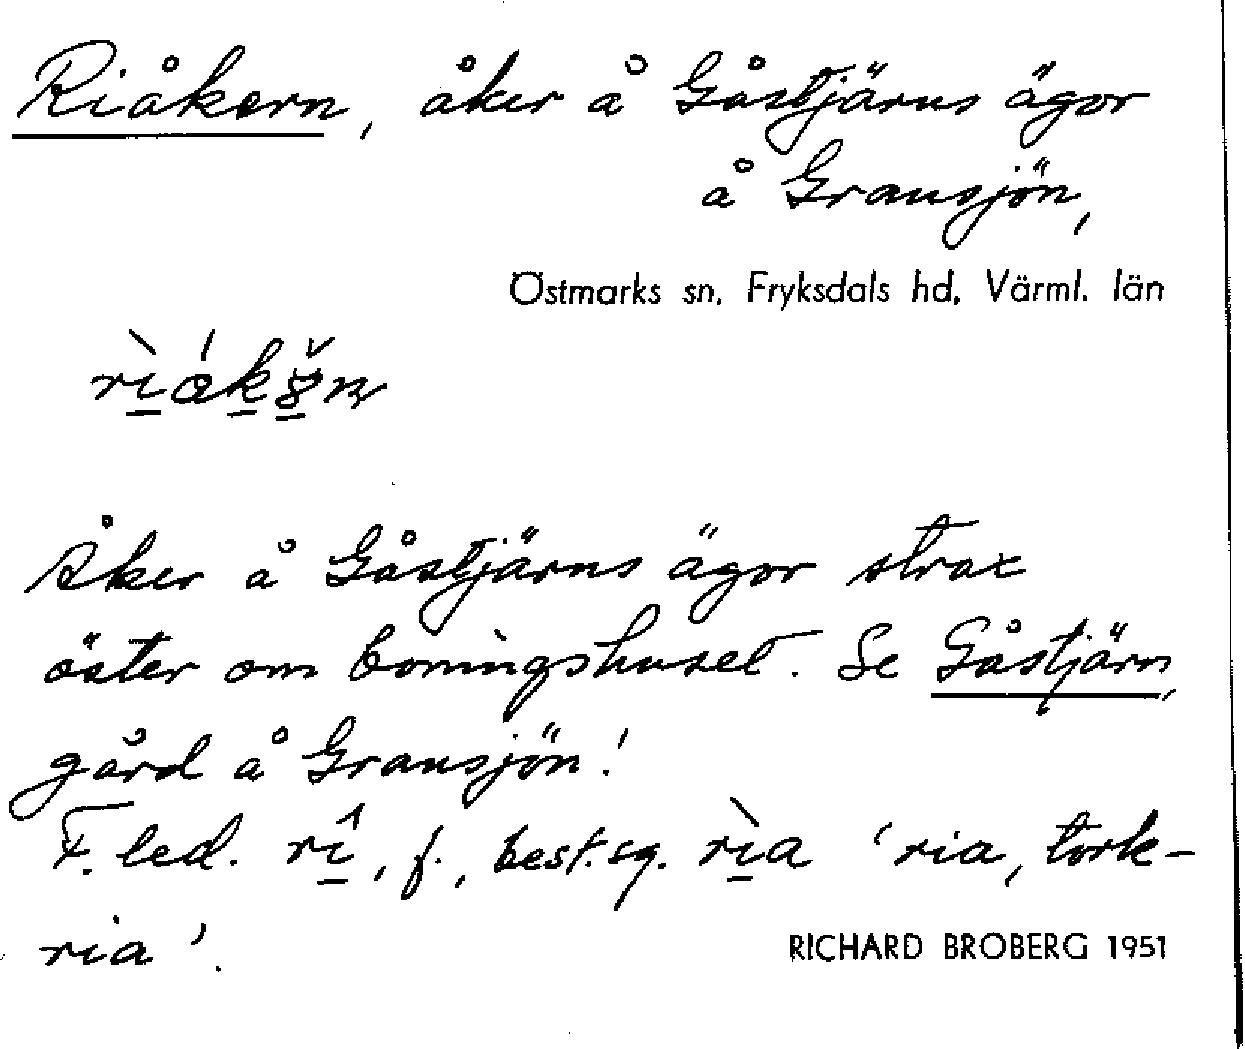 Riåkern, åker å Gåstjärns ägor
å Gransjön,
Östmarks sn, Fryksdals hd, Värml. län
Åker å Gåstjärns ägor strax
öster om boningshuset. Se Gåstjärn,
gård å Gransjön!
F. led. rî, f., best. sg. rìa 'ria, tork-
ria'.
RICHARD BROBERG 1951